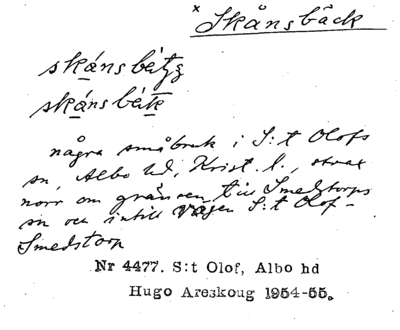 x Skånsbäck
skánsbätʒ
skánsbäk
några småbruk i S:t Olofs
sn, Albo hd, Krist. l., strax
norr om gränsen till Smedstorps
sn och intill vägen S:t Olof-
Smedstorp
Nr 4477. S:t Olof, Albo hd
Hugo Areskoug 1954-55.